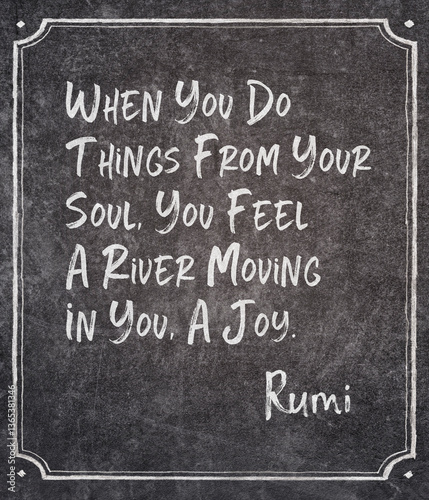 When You Do
Things From Your
Soul, You Feel
A River Moving
in You, A Joy.
Rumi
Adobe Stock | #1365381346